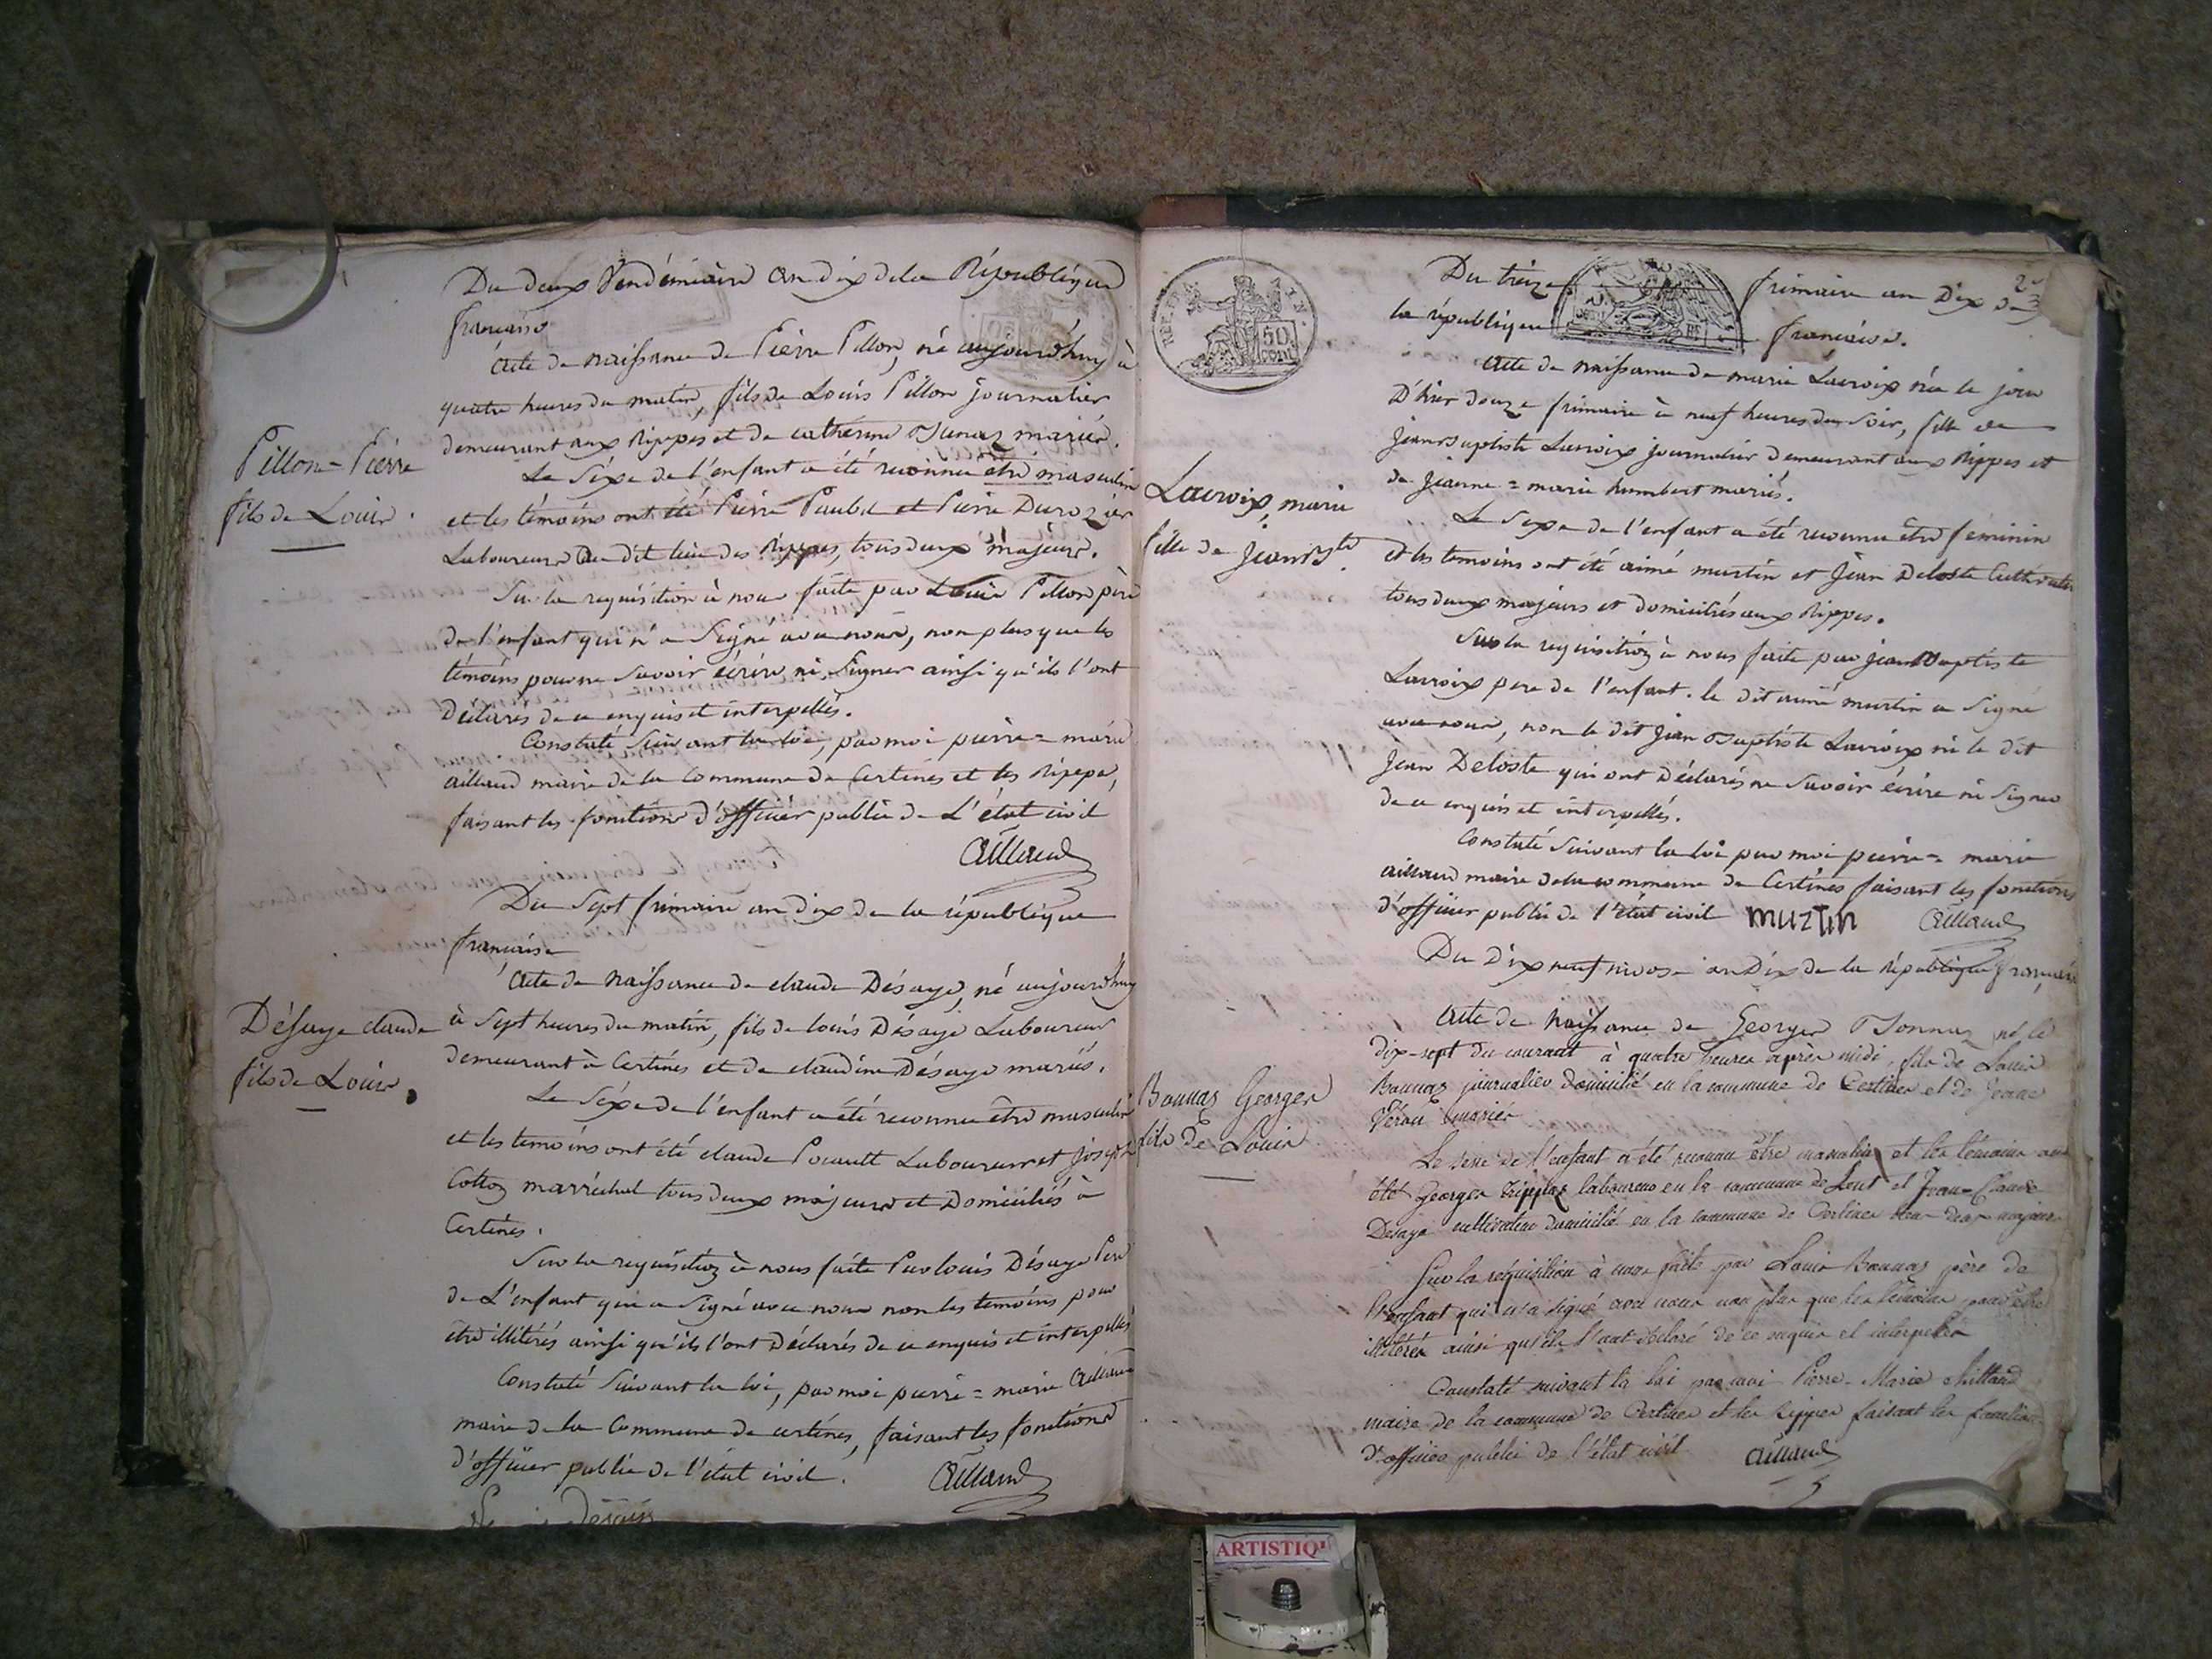 Du deux Vendémiaire an dix de la République
française
Acte de naissance de Pierre Pillon, né aujourd'huy à
quatre heures du matin, fils de Louis Pillon journalier
demeurant aux Rippes et de catherine Bonnaz mariés.
Pillon = Pierre
fils de Louis.
Le Séxe de l'enfant a été reconnu etre masculin
et les témoins ont été Pierre et Pierre Durozier
Laboureurs du dit lieu des Rippes, tous deux majeurs.
Sur la requisition à nous faite par Louis Pillon père
de l'enfant qui n'a Signé avec nous, non plus que les
témoins pour ne Savoir écrire ni Signer ainsi qu'ils l'ont
déclarés de ce enquis et interpellés.
Constaté Suivant la loi, par moi pierre = marie
aillaud maire de la Commune de Certines et les Rippes,
faisant les fonctions d'officier public de L'état civil
Aillaud
Du Sept frimaire an dix de la république
française
Acte de Naissance de claude Désaye, né aujourd'huy
Désaye claude
fils de Louis.
à Sept heures du matin, fils de louis Désaye Laboureur
demeurant à Certines et de claudine Désaye mariés.
Le Séxe de l'enfant a été reconnu être masculin
et les temoins ont été claude Laboureur et joseph
maréchal tous deux majeurs et Domiciliés à
Certines.
Sur la requisition à nous faite Par louis Désaye Pere
de L'enfant qui a Signé avec nous non les temoins pour
être illitérés ainsi qu'ils l'ont Déclarés de ce enquis et interpellés
Constaté Suivant la loi, par moi pierre = marie Aillaud
maire de la Commune de certines, faisant les fonctions
d'officier public de l'état civil.
Aillaud
Du treize frimaire an Dix de
la république française.
Acte de naissance de marie Lacroix née le jour
D'hier douze frimaire à neuf heures du Soir, fille de
jean Baptiste Lacroix journalier demeurant aux Rippes et
de Jeanne = marie humbert mariés.
Lacroix, marie
fille de jean Bte.
Le Sexe de l'enfant a été reconnu être feminin
et les temoins ont été aimé murtin et Jean Deloste Cultivateurs
tous deux majeurs et domiciliés aux Rippes.
Sur la requisition à nous faite par jean Baptiste
Lacroix pere de l'enfant. le dit aimé murtin a Signé
avec nous, non le dit jean Baptiste Lacroix ni le dit
Jean Deloste qui ont Déclarés ne Savoir écrire ni Signer
de ce enquis et interpellés.
Constaté Suivant la loi par moi pierre = marie
aillaud maire de la commune de Certines faisant les fonctions
d'officier public de l'état civil murtin Aillaud
Du Dix neuf nivose an Dix de la république française
Acte de Naissance de Georges Bonnaz né le
dix-sept du courant à quatre heures après midi, fils de Louis
Bonnaz journalier domicilié en la commune de Certines et de Jeanne
mariés
Bonnaz Georges
fils de Louis
Le sexe de l'enfant a été reconnu être masculin et les témoins ont
été Georges laboureur en la commune de Lent et Jean-Claude
Desaye cultivateur domicilié en la commune de Certines tous deux majeurs
Sur la réquisition à nous faite par Louis Bonnaz père de
l'enfant qui n'a signé avec nous non plus que les témoins pour être
illitérés ainsi qu'ils l'ont déclaré de ce enquis et interpellés
Constaté suivant la loi par moi Pierre-Marie Aillaud
maire de la commune de Certines et les Rippes faisant les fonctions
d'officier public de l'état civil Aillaud
50
CENT
ARTISTIQ